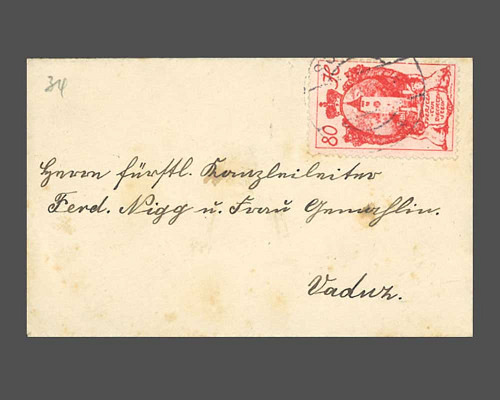 34
80
H
Herrn fürstl. Kanzleileiter
Ferd. Nigg u. Frau Gemahlin.
Vaduz.